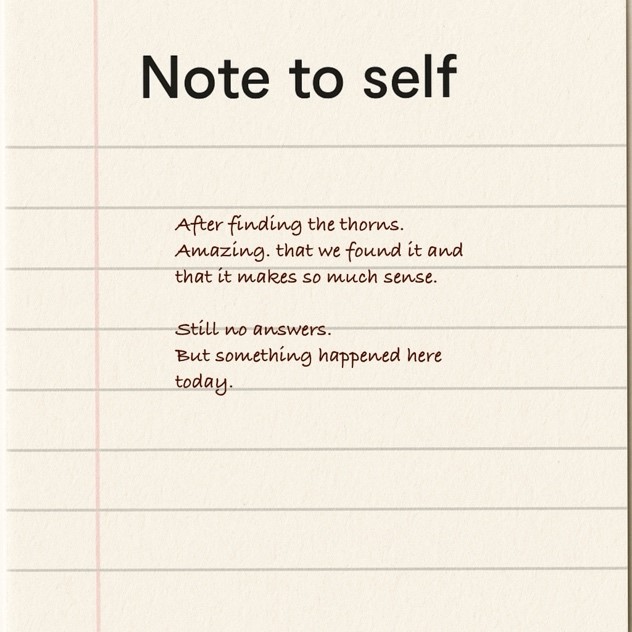 Note to self
After finding the thorns.
Amazing. that we found it and
that it makes so much sense.
Still no answers.
But something happened here
today.